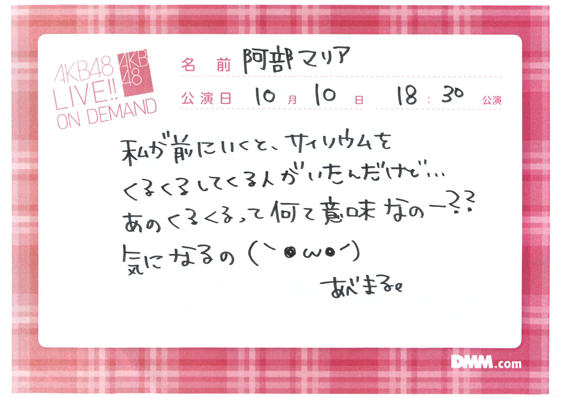 AKB48
LIVE!!
ON DEMAND
AKB
48
名前 阿部マリア
公演日 10月10日 18:30公演
私が前にいくと、サイリウムを
くるくるしてくる人がいたんだけど…
あのくるくるって何て意味なのー??
気になるの (｀●ω●´)
あべまる。
DMM.com